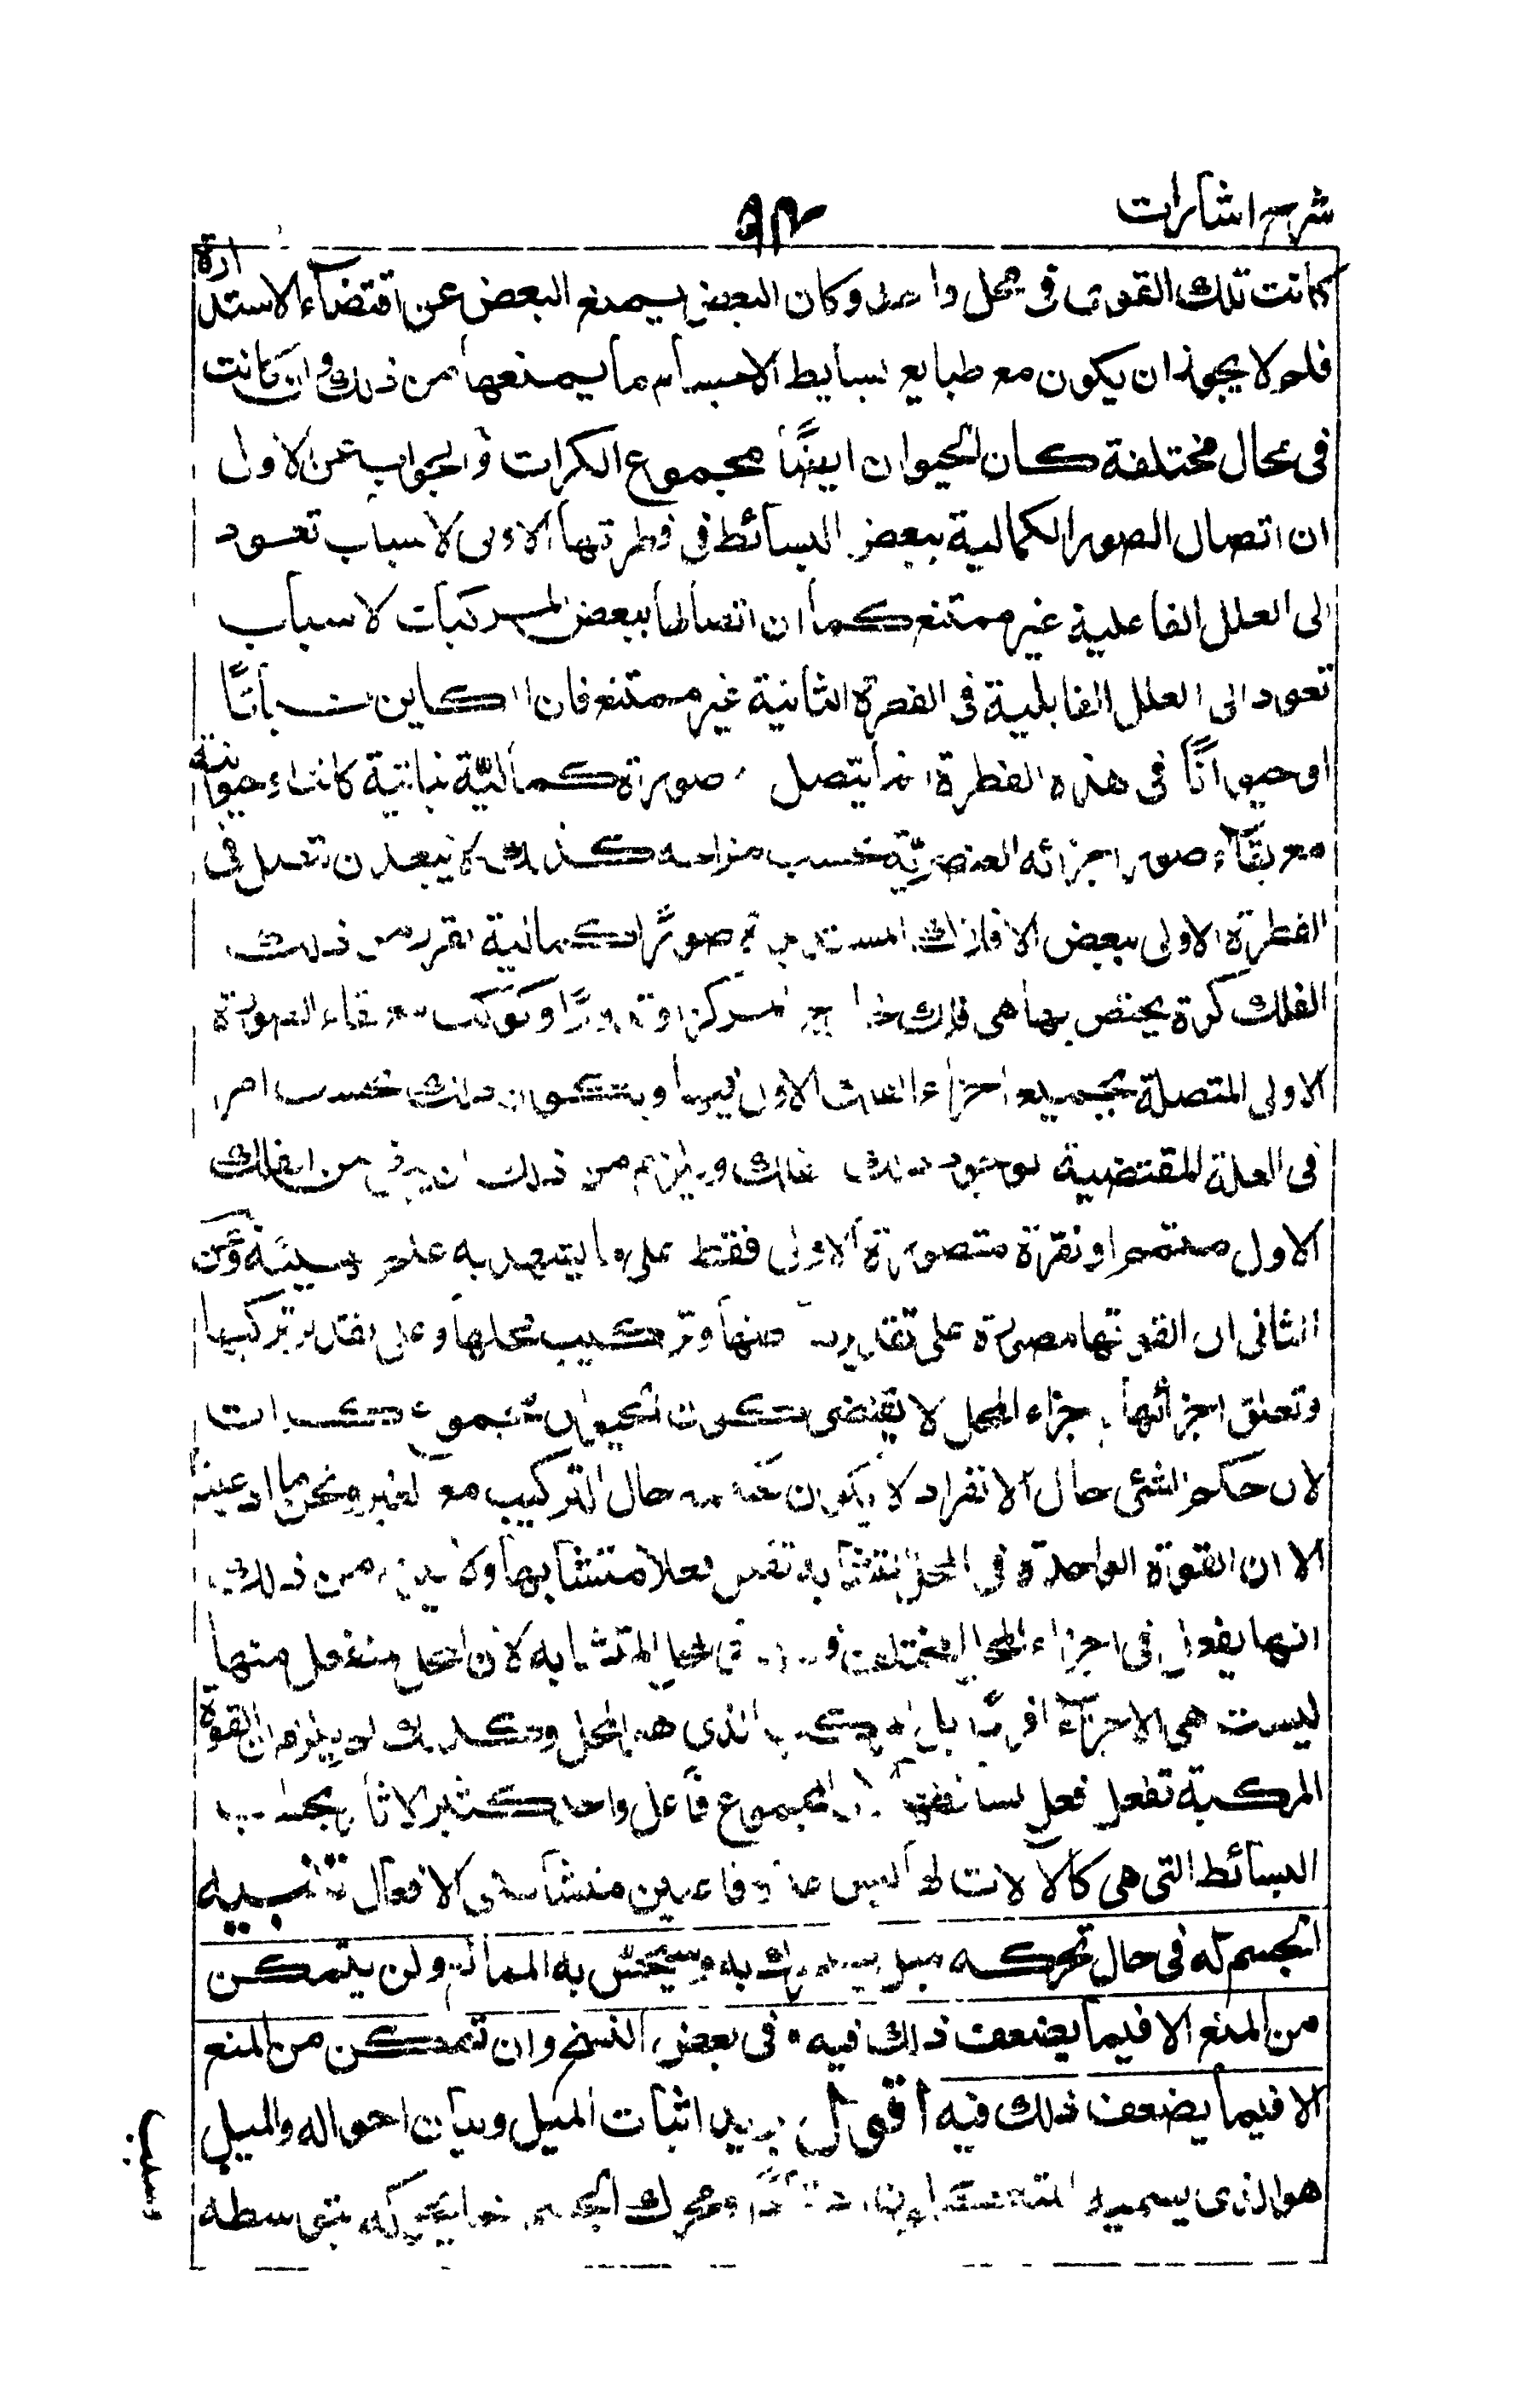 شرح اشارات
٩٣
كانت تلك القوى فى محل واحد وكان البعض يمنع البعض عن اقتضاء الاستدارة
فلم لا يجوز ان يكون مع طبايع بسايط الاجسام ما يمنعها من ذلك وان كانت
فى محال مختلفة كان الحيوان ايضًا مجموع الكرات والجواب عن الاول
ان اتصال الصور الكمالية ببعض البسائط فى فطرتها الاولى لاسباب تعود
الى العلل الفاعلية غير ممتنع كما ان اتصالها ببعض المركبات لاسباب
تعود الى العلل القابلية فى الفطرة الثانية غير ممتنع فان الكاين نباتًا
او حيوانًا فى هذه الفطرة انما يتصل صورة كمالية نباتية كانت او حيوانية
مع بقاء صور اجزائه العنصرية بحسب مزاجه كذلك لا يبعد ان تتصل فى
الفطرة الاولى ببعض الافلاك المستديرة صور كمالية تفرز من ذلك
الفلك كرة يختص بها هى فلك خارج المركز او تدوير او كوكب مع بقاء الصورة
الاولى المتصلة بجميع اجزاء الفلك الاول فيها ويكون ذلك بحسب امر
فى العلة المقتضية لوجود ذلك الفلك ويلزم من ذلك ان يبقى من الفلك
الاول متمم او نقرة متصورة الاولى فقط على ما يشهد به علم الهيئة وعن
الثانى ان القوة المصورة على تقدير بساطتها وتركيب محلها وعلى تقدير تركيبها
وتعلق اجزائها باجزاء المحل لا يقتضى كون الحيوان مجموع كرات
لان حكم الشئ حال الانفراد لا يكون حكمه حال التركيب مع الغير ونحن ما ادعينا
الا ان القوة الواحدة فى المحل المتشابه تفعل فعلا متشابها ولا يلزم من ذلك
انها يفعل فى اجزاء المحل المختلف فعلها فى المحل المتشابه لان المحل المنفعل منها
ليست هى الاجزاء افرادا بل المركب الذى هو المحل وكذلك لم يلزم ان القوة
المركبة تفعل فعل بسائطها لان المجموع فاعل واحد كثير الاثار بحسب
البسائط التى هى كالآلات لها ليس عدة فاعلين متشابهى الافعال تنبيه
الجسم له فى حال تحركه ميل يتحرك به ويحس به الممانع ولن يتمكن
من المنع الا فيما يضعف ذلك فيه ٭ فى بعض النسخ وان تمكن من المنع
الا فيما يضعف ذلك فيه اقول يريد اثبات الميل وبيان احواله والميل
هو الذى يسميه المتكلمون اعتمادًا ومحرك الجسم انما يحركه بتوسطه